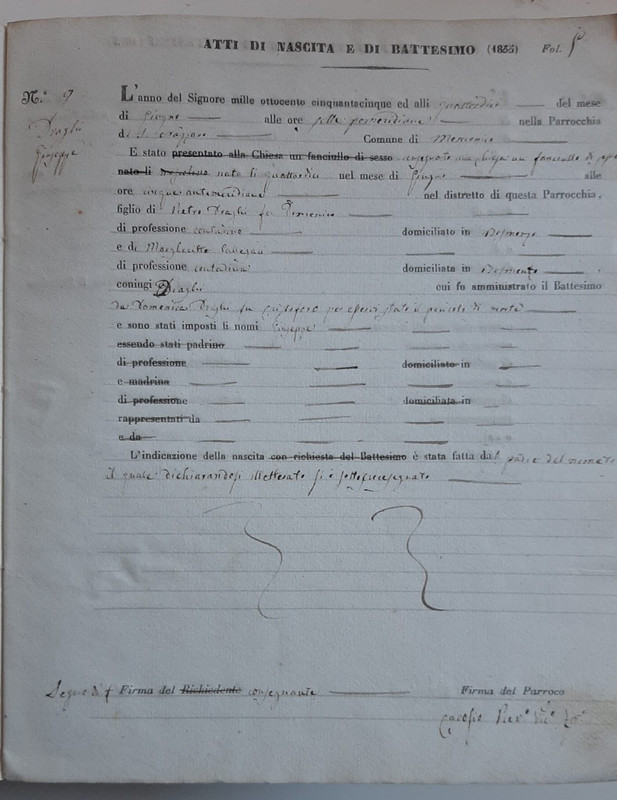 ATTI DI NASCITA E DI BATTESIMO (1855) Fol. 5
N.° 9
Draghi
Giuseppe
L'anno del Signore mille ottocento cinquantacinque ed alli quattordici del mese
di Giugno alle ore sette pomeridiane nella Parrocchia
di S. Comune di
E stato presentato alla Chiesa un fanciullo di sesso consegnato un fanciullo di
nato li nato li quattordici nel mese di Giugno alle
ore cinque antimeridiane nel distretto di questa Parrocchia,
figlio di Pietro Draghi fu Domenico
di professione contadino domiciliato in
e di Margherita
di professione contadina domiciliata in
coniugi Draghi cui fo amministrato il Battesimo
da Domenica Draghi fu Cristoforo per esservi stato il pericolo di morte
e sono stati imposti li nomi Giuseppe
essendo stati padrino
di professione domiciliato in
e madrina
di professione domiciliata in
rappresentati da
e da
L'indicazione della nascita con richiesta del Battesimo è stata fatta dal padre del neonato
il quale dichiarandosi illetterato si è sottocrocesegnato
Segno di † Firma del Richiedente consegnante Firma del Parroco